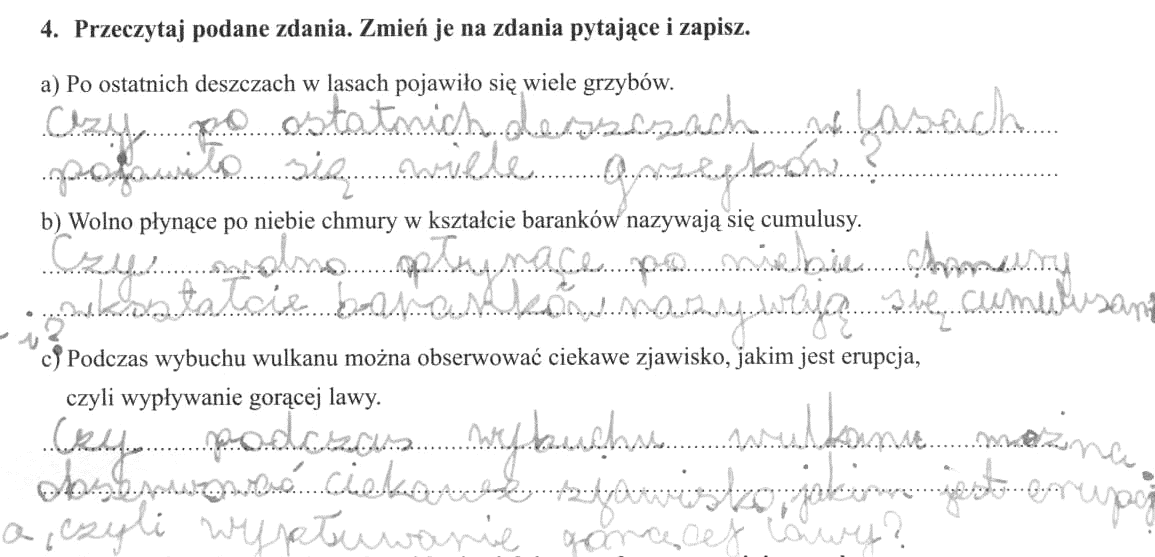 4. Przeczytaj podane zdania. Zmień je na zdania pytające i zapisz.
a) Po ostatnich deszczach w lasach pojawiło się wiele grzybów.
Czy po ostatnich deszczach w lasach
pojawiło się wiele grzybów?
b) Wolno płynące po niebie chmury w kształcie baranków nazywają się cumulusy.
Czy wolno płynące po niebie chmury
w kształcie baranków nazywają się cumulusam
-i?
c) Podczas wybuchu wulkanu można obserwować ciekawe zjawisko, jakim jest erupcja,
czyli wypływanie gorącej lawy.
Czy podczas wybuchu wulkanu można
obserwować ciekawe zjawisko, jakim jest erupcj
a, czyli wypatuwanie gorącej lawy?